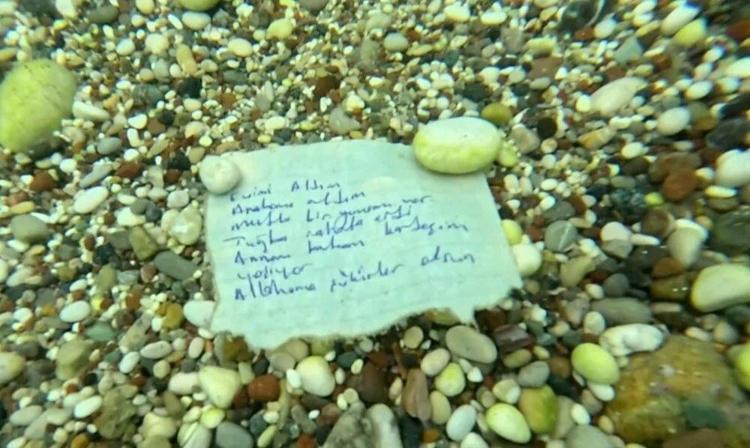 Evimi Aldım
Arabamı aldım
mutlu bir yuvam var
Tuğba
Annem babam kardeşim
yaşıyor
Allahıma şükürler olsun